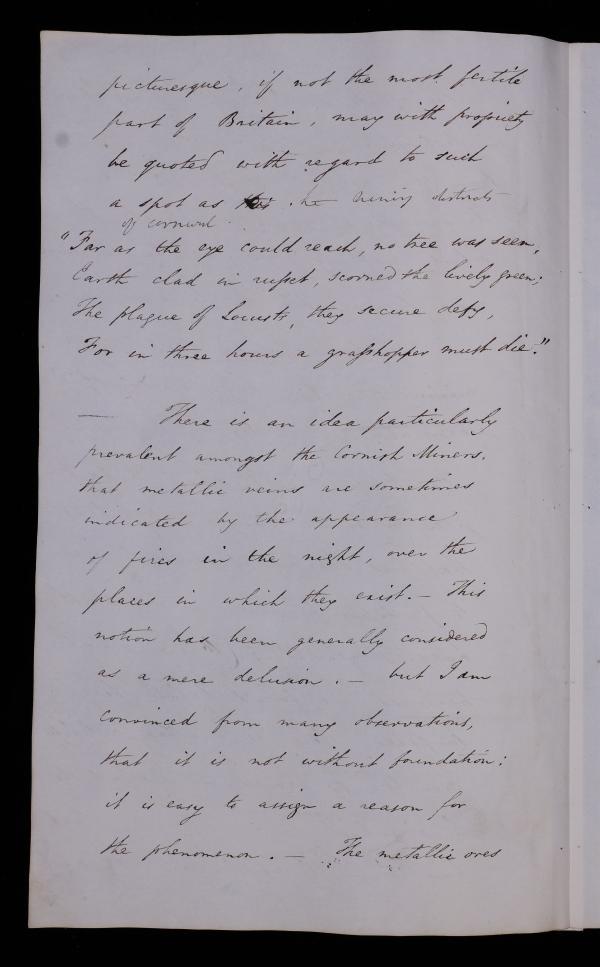 picturesque, if not the most fertile
part of Britain, may with propriety
be quoted with regard to such
a spot as the mining districts
of Cornwal.
"Far as the eye could reach, no tree was seen,
Earth clad in russet, scorned the lively green;
The plague of Locusts, they secure defy,
For in three hours a grasshopper must die."
— There is an idea particularly
prevalent amongst the Cornish Miners,
that metallic veins are sometimes
indicated by the appearance
of fires in the night, over the
places in which they exist. — This
notion has been generally considered
as a mere delusion. — but I am
convinced from many observations,
that it is not without foundation:
it is easy to assign a reason for
the phenomenon. — The metallic ores